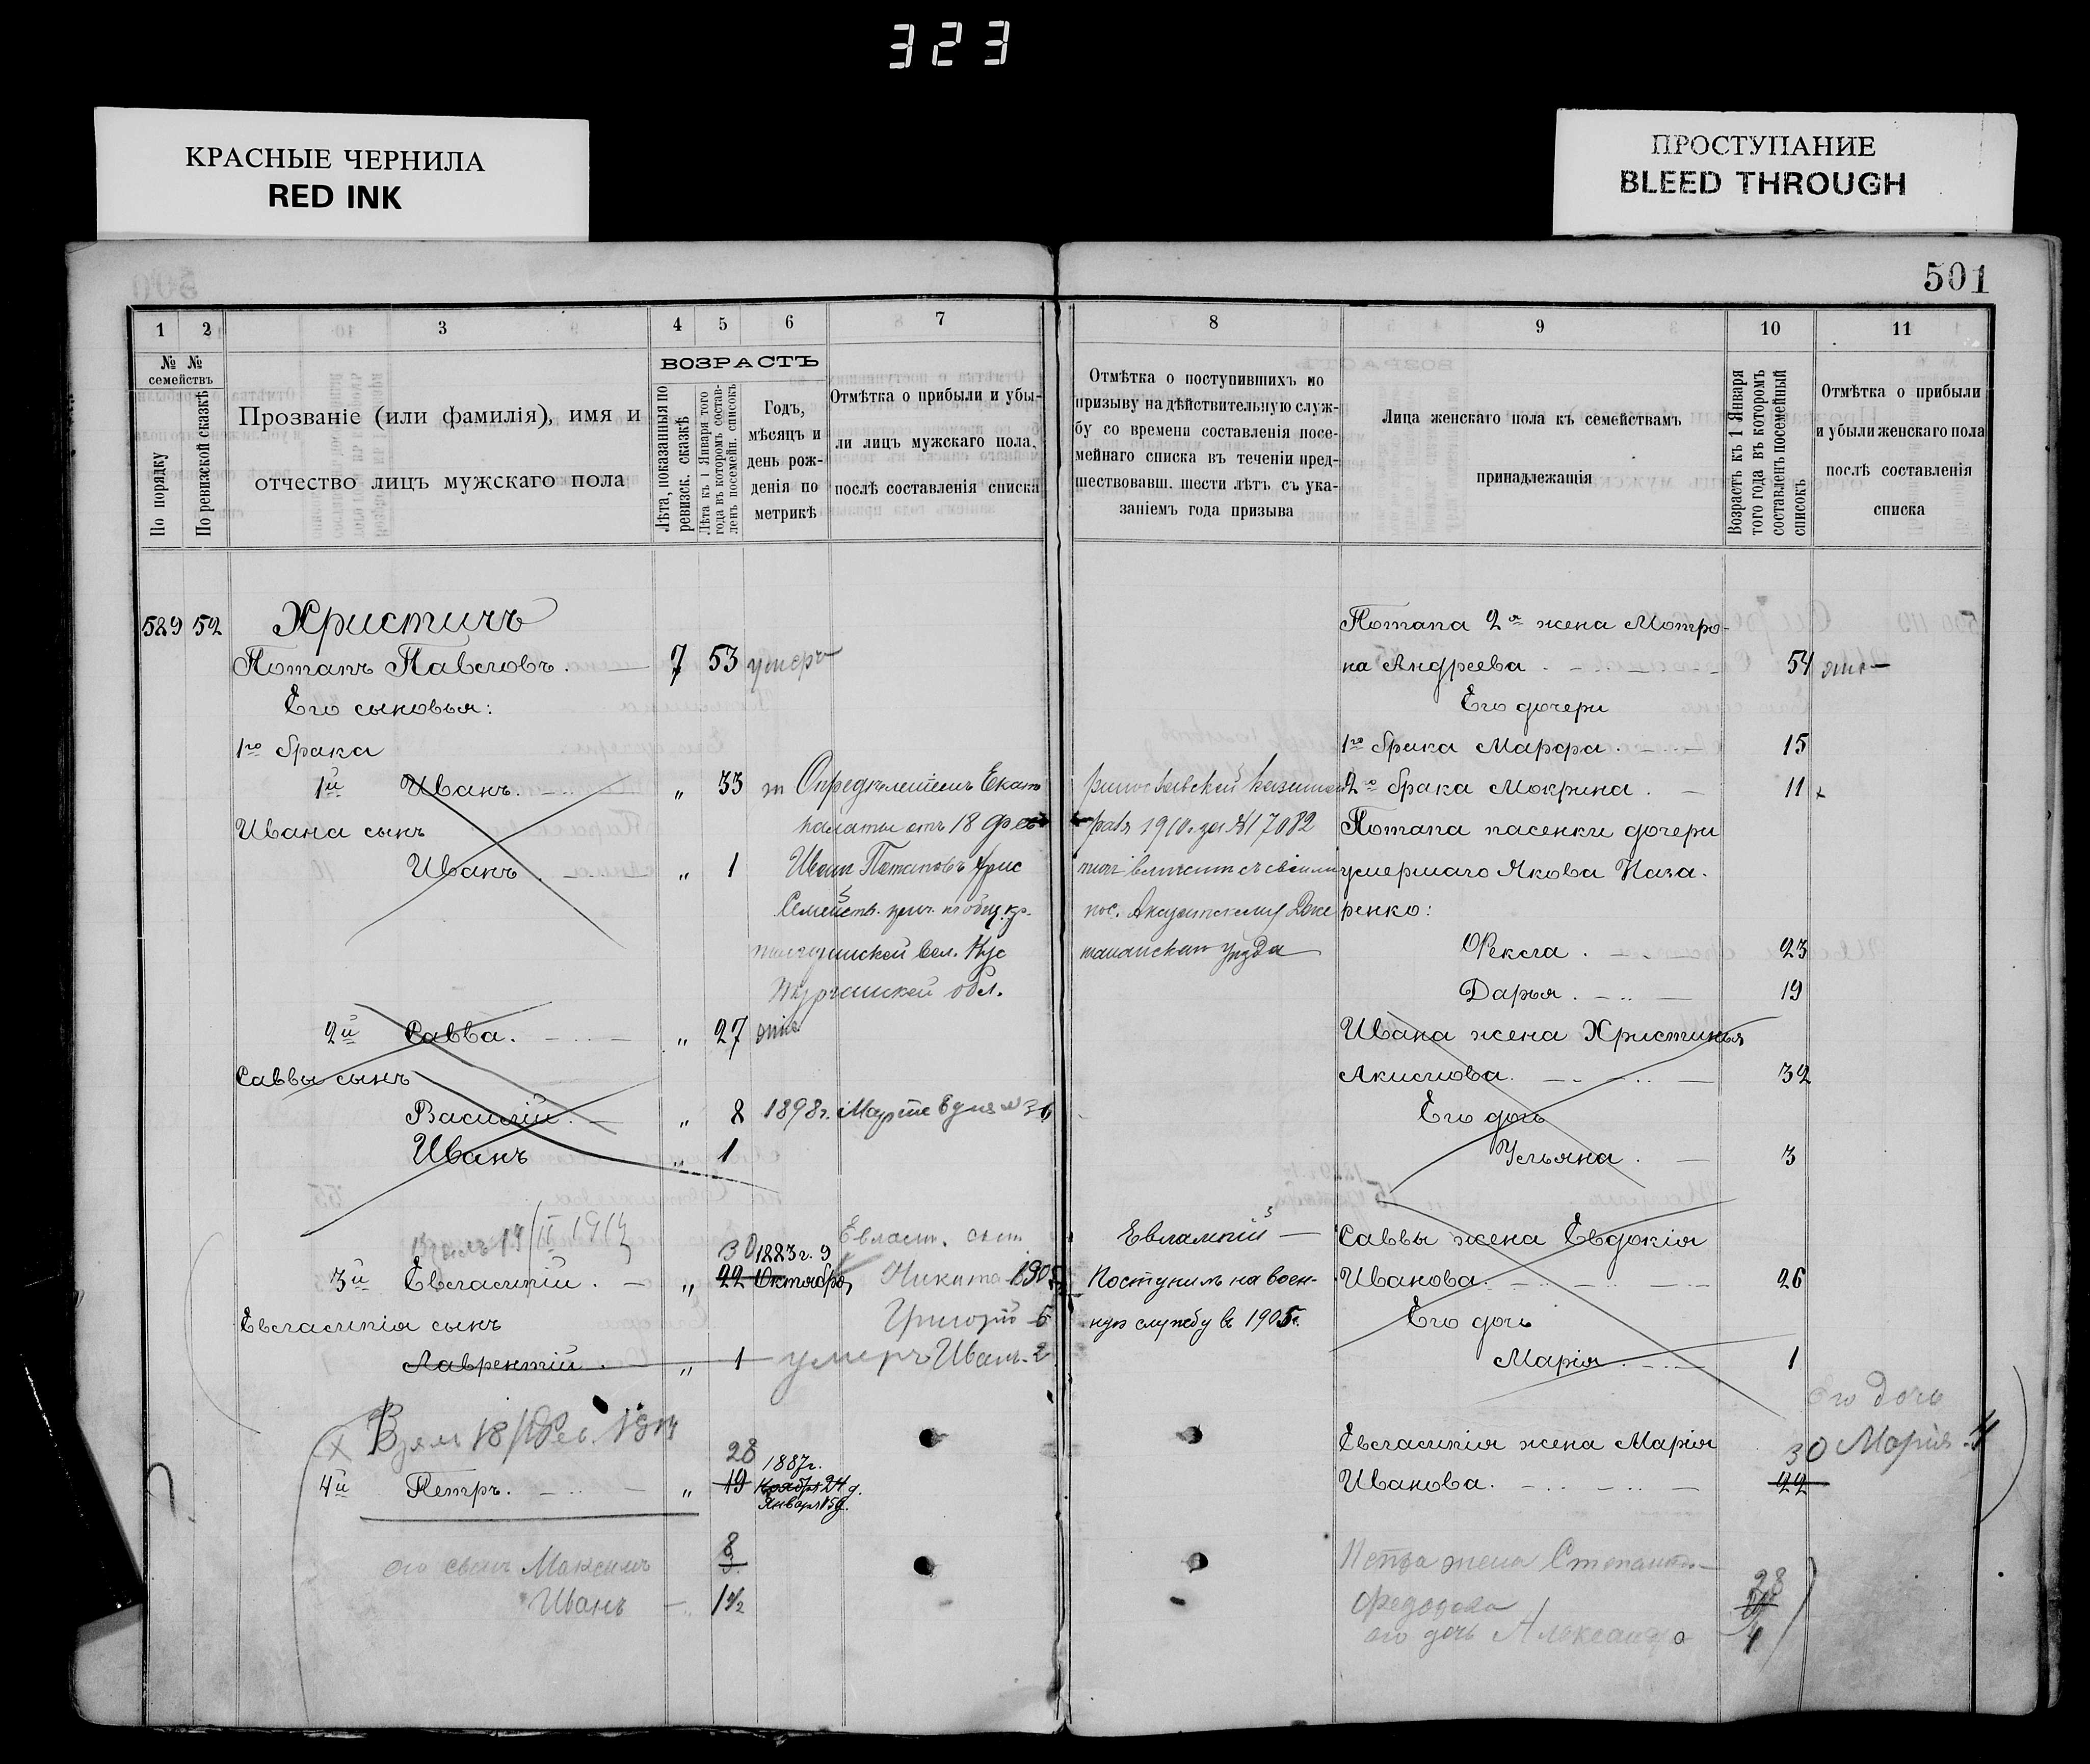 323
КРАСНЫЕ ЧЕРНИЛА
RED INK
ПРОСТУПАНИЕ
BLEED THROUGH
501
1 2 3 4 5 6 7
№ № семействъ
По порядку
По ревизской сказкѣ
Прозваніе (или фамилія), имя и
отчество лицъ мужскаго пола
ВОЗРАСТЪ
Лѣта, показанныя по
ревизск. сказкѣ
Лѣта къ 1 Января того
года въ которомъ состав-
ленъ посемейн. списокъ
Годъ,
мѣсяцъ и
день рож-
денія по
метрикѣ
Отмѣтка о прибыли и убы-
ли лицъ мужскаго пола,
послѣ составленія списка
589 52 Христичъ
Потапъ Павловъ. 7 53 умеръ
Его сыновья:
1го брака
1й Иванъ. „ 33 Опредѣленіемъ Екат
Ивана сынъ палаты отъ 18 фев
Иванъ. „ 1 Иван Потаповъ Хрис
Семейств.
вол. Кус
обл.
2й Савва. „ 27
Саввы сынъ
Василій. „ 8 1898 г. Марта 6 дня
Иванъ „ 1
19/II 1914
30 1883 г. 9
3й Евлампій. „ 22 Октября, Никита 1905
Евлампія сынъ Григорій 5
Лаврентій. „ 1 умеръ Иванъ. 2
Взят 18/Фев. 1914
28 1887 г.
4й Петръ. „ 19 Ноября 24 д.
Января 15 д.
8
его сынъ Максимъ 3
Иванъ 1 1/2
8 9 10 11
Отмѣтка о поступившихъ по
призыву на дѣйствительную служ-
бу со времени составленія посе-
мейнаго списка въ теченіи пред-
шествовавш. шести лѣтъ съ ука-
заніемъ года призыва
Лица женскаго пола къ семействамъ
принадлежащія
Возрастъ къ 1 Января
того года въ которомъ
составленъ посемейный
списокъ
Отмѣтка о прибыли
и убыли женскаго пола
послѣ составленія
списка
Потапа 2я жена Мотро-
на Андреева. 54
Его дочери
1го брака Марфа. 15
2го брака Мокрина. 11
раля 1910 г. за № 17082 Потапа пасенки дочери
умершаго Якова Наза-
ренко:
уѣзда Фекла. 23
Дарья. 19
Ивана жена Христинья
Акимова. 32
Его дочь
Ульяна. 3
Евлампій Саввы жена Евдокія
Поступилъ на воен- Иванова. 26
ную службу в 1905 г. Его дочь
Марія. 1
Его дочь
Евлампія жена Марія 30 Марія 4
Иванова. 22
Петра жена Степанида
28
Федорова
его дочь Александра 4